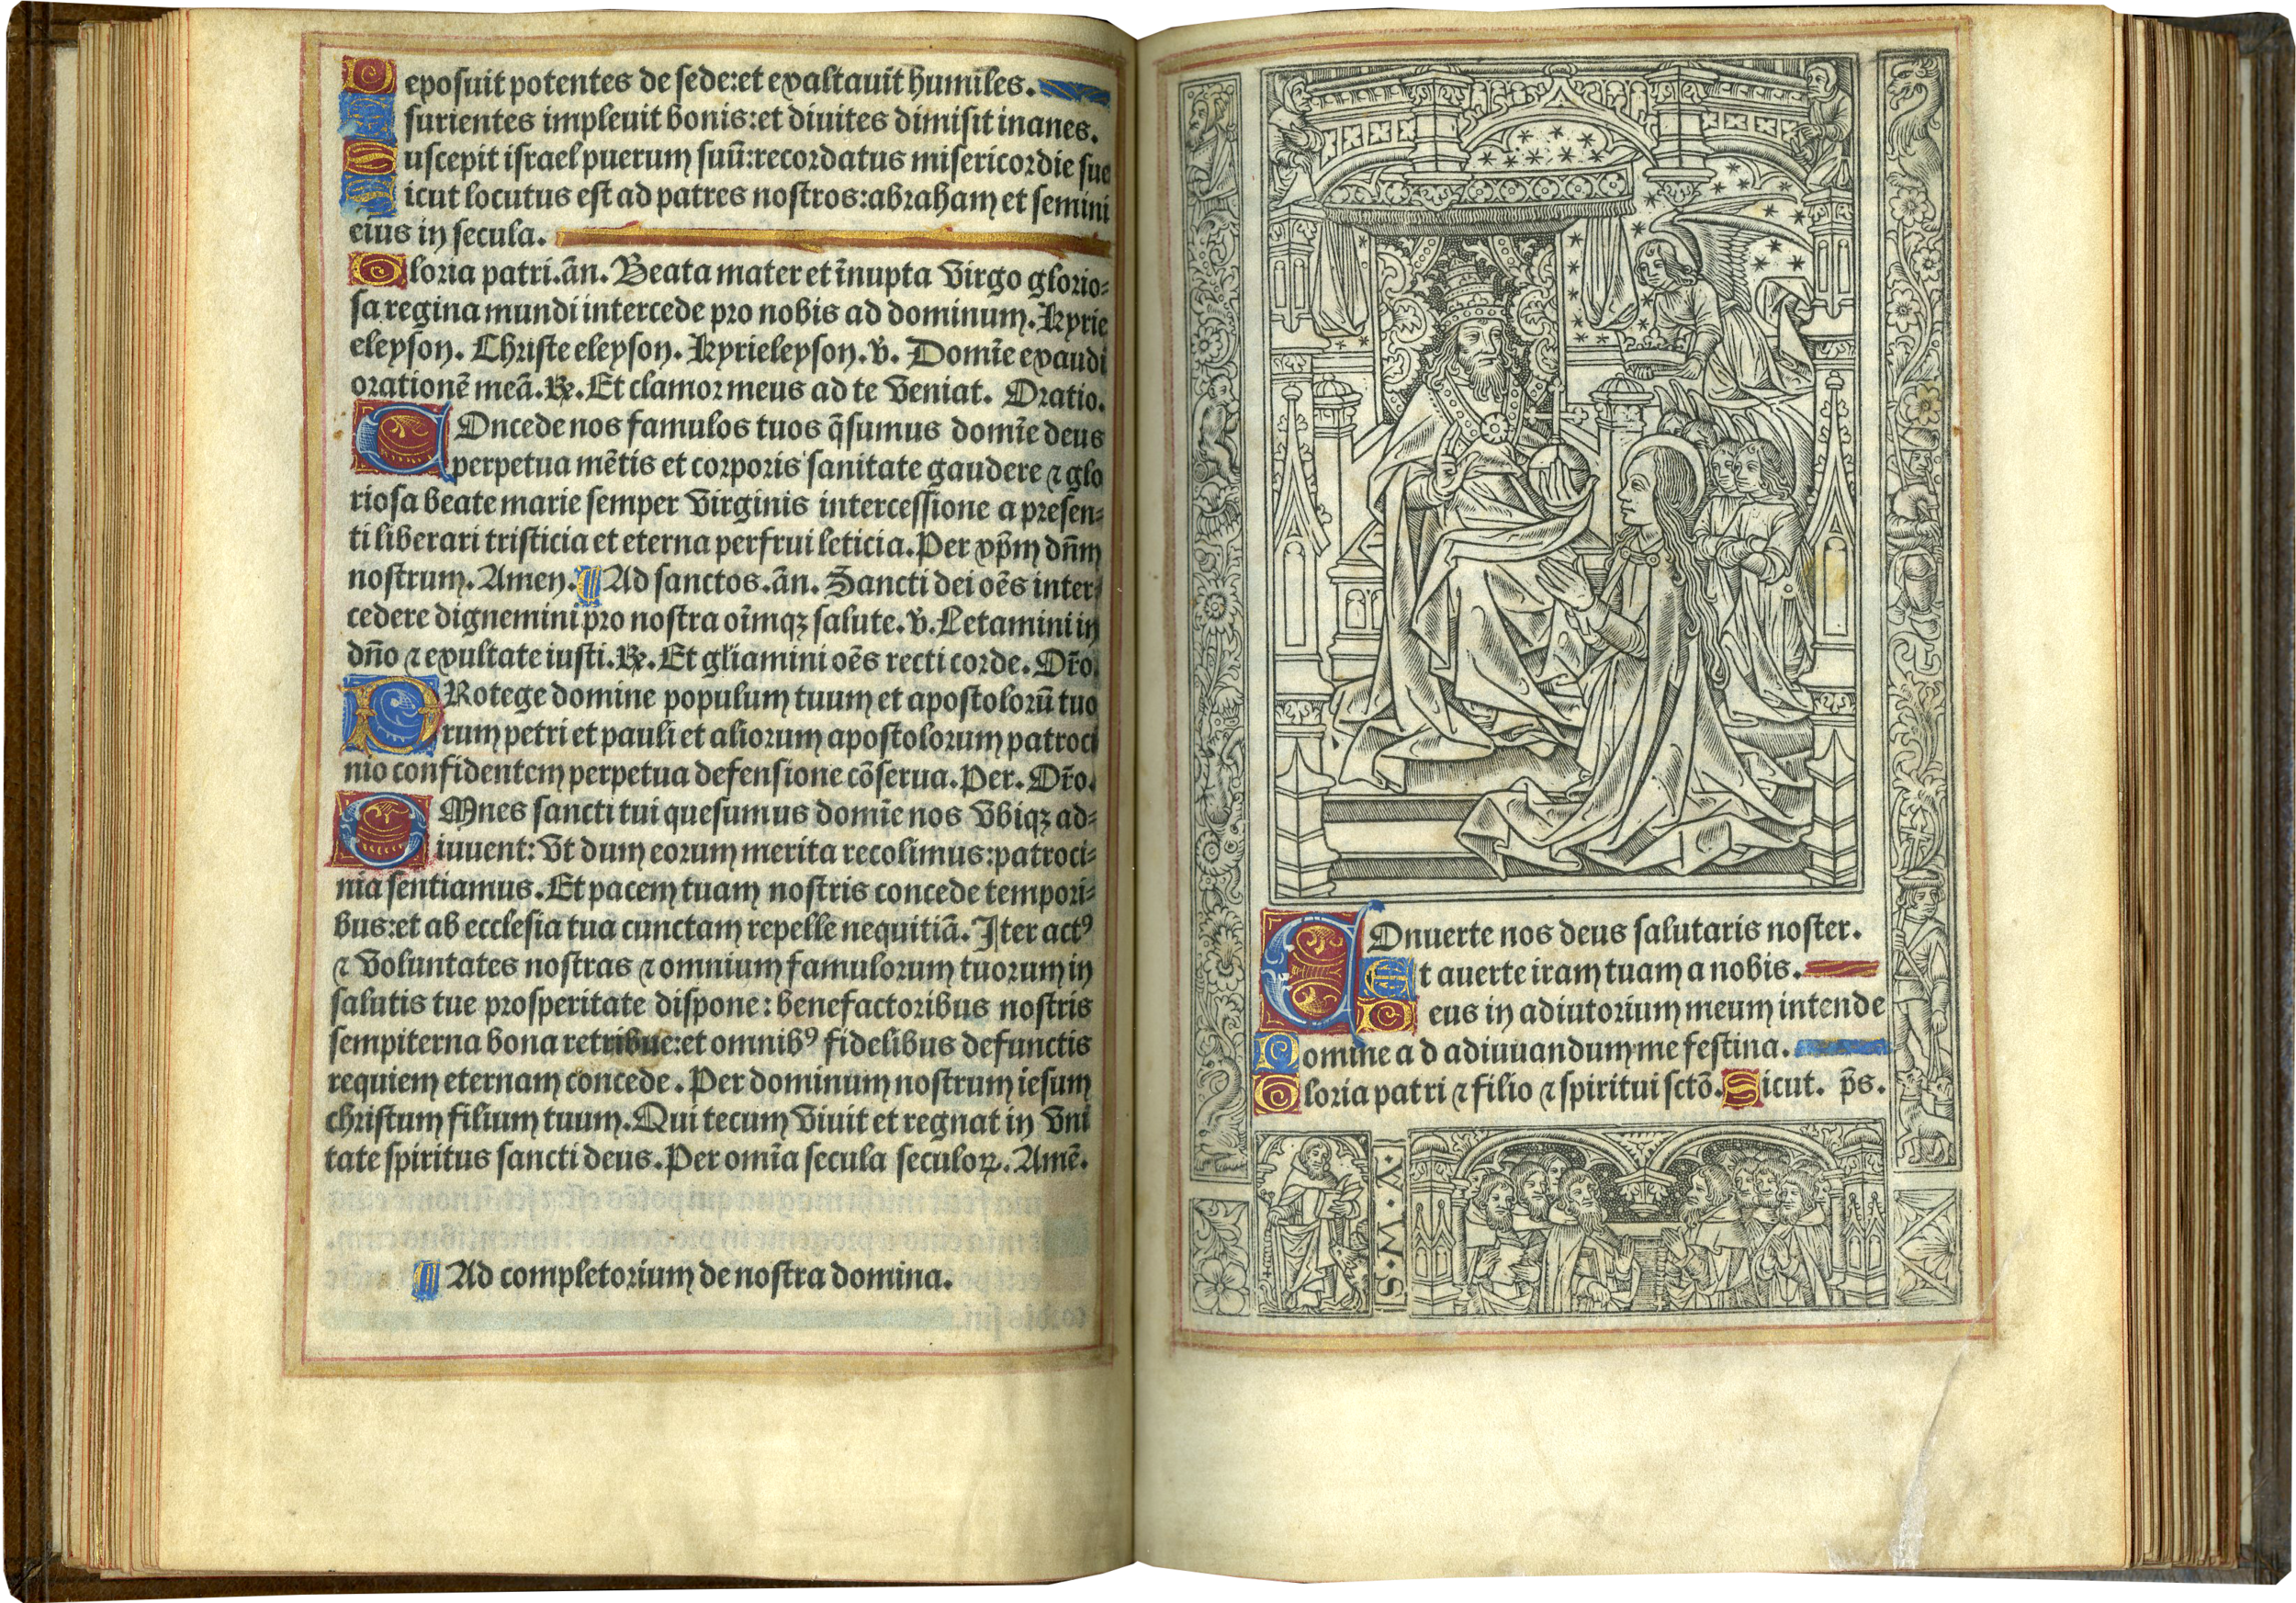 Deposuit potentes de sede:et exaltauit humiles.
Esurientes impleuit bonis:et diuites dimisit inanes.
Suscepit israel puerum suū:recordatus misericordie sue
Sicut locutus est ad patres nostros:abraham et semini
eius in secula.
Gloria patri.ān. Beata mater et īnupta virgo glorio=
sa regina mundi intercede pro nobis ad dominum. Kyrie
eleyson. Christe eleyson. Kyrieleyson. v̄. Domīe exaudi
orationē meā. ℟. Et clamor meus ad te veniat. Oratio.
COncede nos famulos tuos q̄sumus domīe deus
perpetua mētis et corporis sanitate gaudere ⁊ glo
riosa beate marie semper virginis intercessione a presen=
ti liberari tristicia et eterna perfrui leticia. Per xp̄m dn̄m
nostrum. Amen. ¶ Ad sanctos. ān. Sancti dei oēs inter=
cedere dignemini pro nostra oīmqꝫ salute. v̄. Letamini in
dn̄o ⁊ exultate iusti. ℟. Et gl̄iamini oēs recti corde. Or̄o.
PRotege domine populum tuum et apostolorū tuo
rum petri et pauli et aliorum apostolorum patroci
nio confidentem perpetua defensione cōserua. Per. Or̄o.
OMnes sancti tui quesumus domīe nos vbiqꝫ ad=
iuuent: vt dum eorum merita recolimus:patroci=
nia sentiamus. Et pacem tuam nostris concede tempori=
bus:et ab ecclesia tua cunctam repelle nequitiā. Iter actꝰ
⁊ voluntates nostras ⁊ omnium famulorum tuorum in
salutis tue prosperitate dispone: benefactoribus nostris
sempiterna bona retribue:et omnibꝰ fidelibus defunctis
requiem eternam concede. Per dominum nostrum iesum
christum filium tuum. Qui tecum viuit et regnat in vni
tate spiritus sancti deus. Per omīa secula seculoꝝ. Amē.
¶ Ad completorium de nostra domina.
COnuerte nos deus salutaris noster.
Et auerte iram tuam a nobis.
Deus in adiutorium meum intende
Domine ad adiuuandum me festina.
Gloria patri ⁊ filio ⁊ spiritui sctō. Sicut. p̄s.